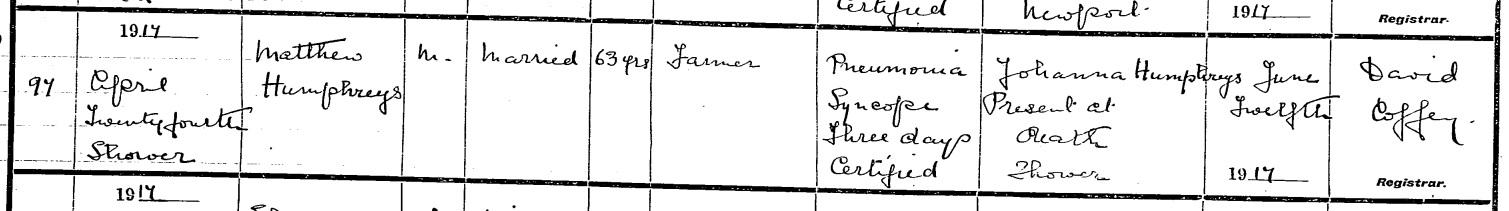 Certified
Newport.
1917
Registrar.
97
1917
April
Twentyfourth
Shower
Matthew
Humphreys
M.
Married
63 yrs
Farmer
Pneumonia
Syncope
Three days
Certified
Johanna Humphreys
Present at
Death
Shower
June
Twelfth
1917
David
Coffey.
Registrar.
1917